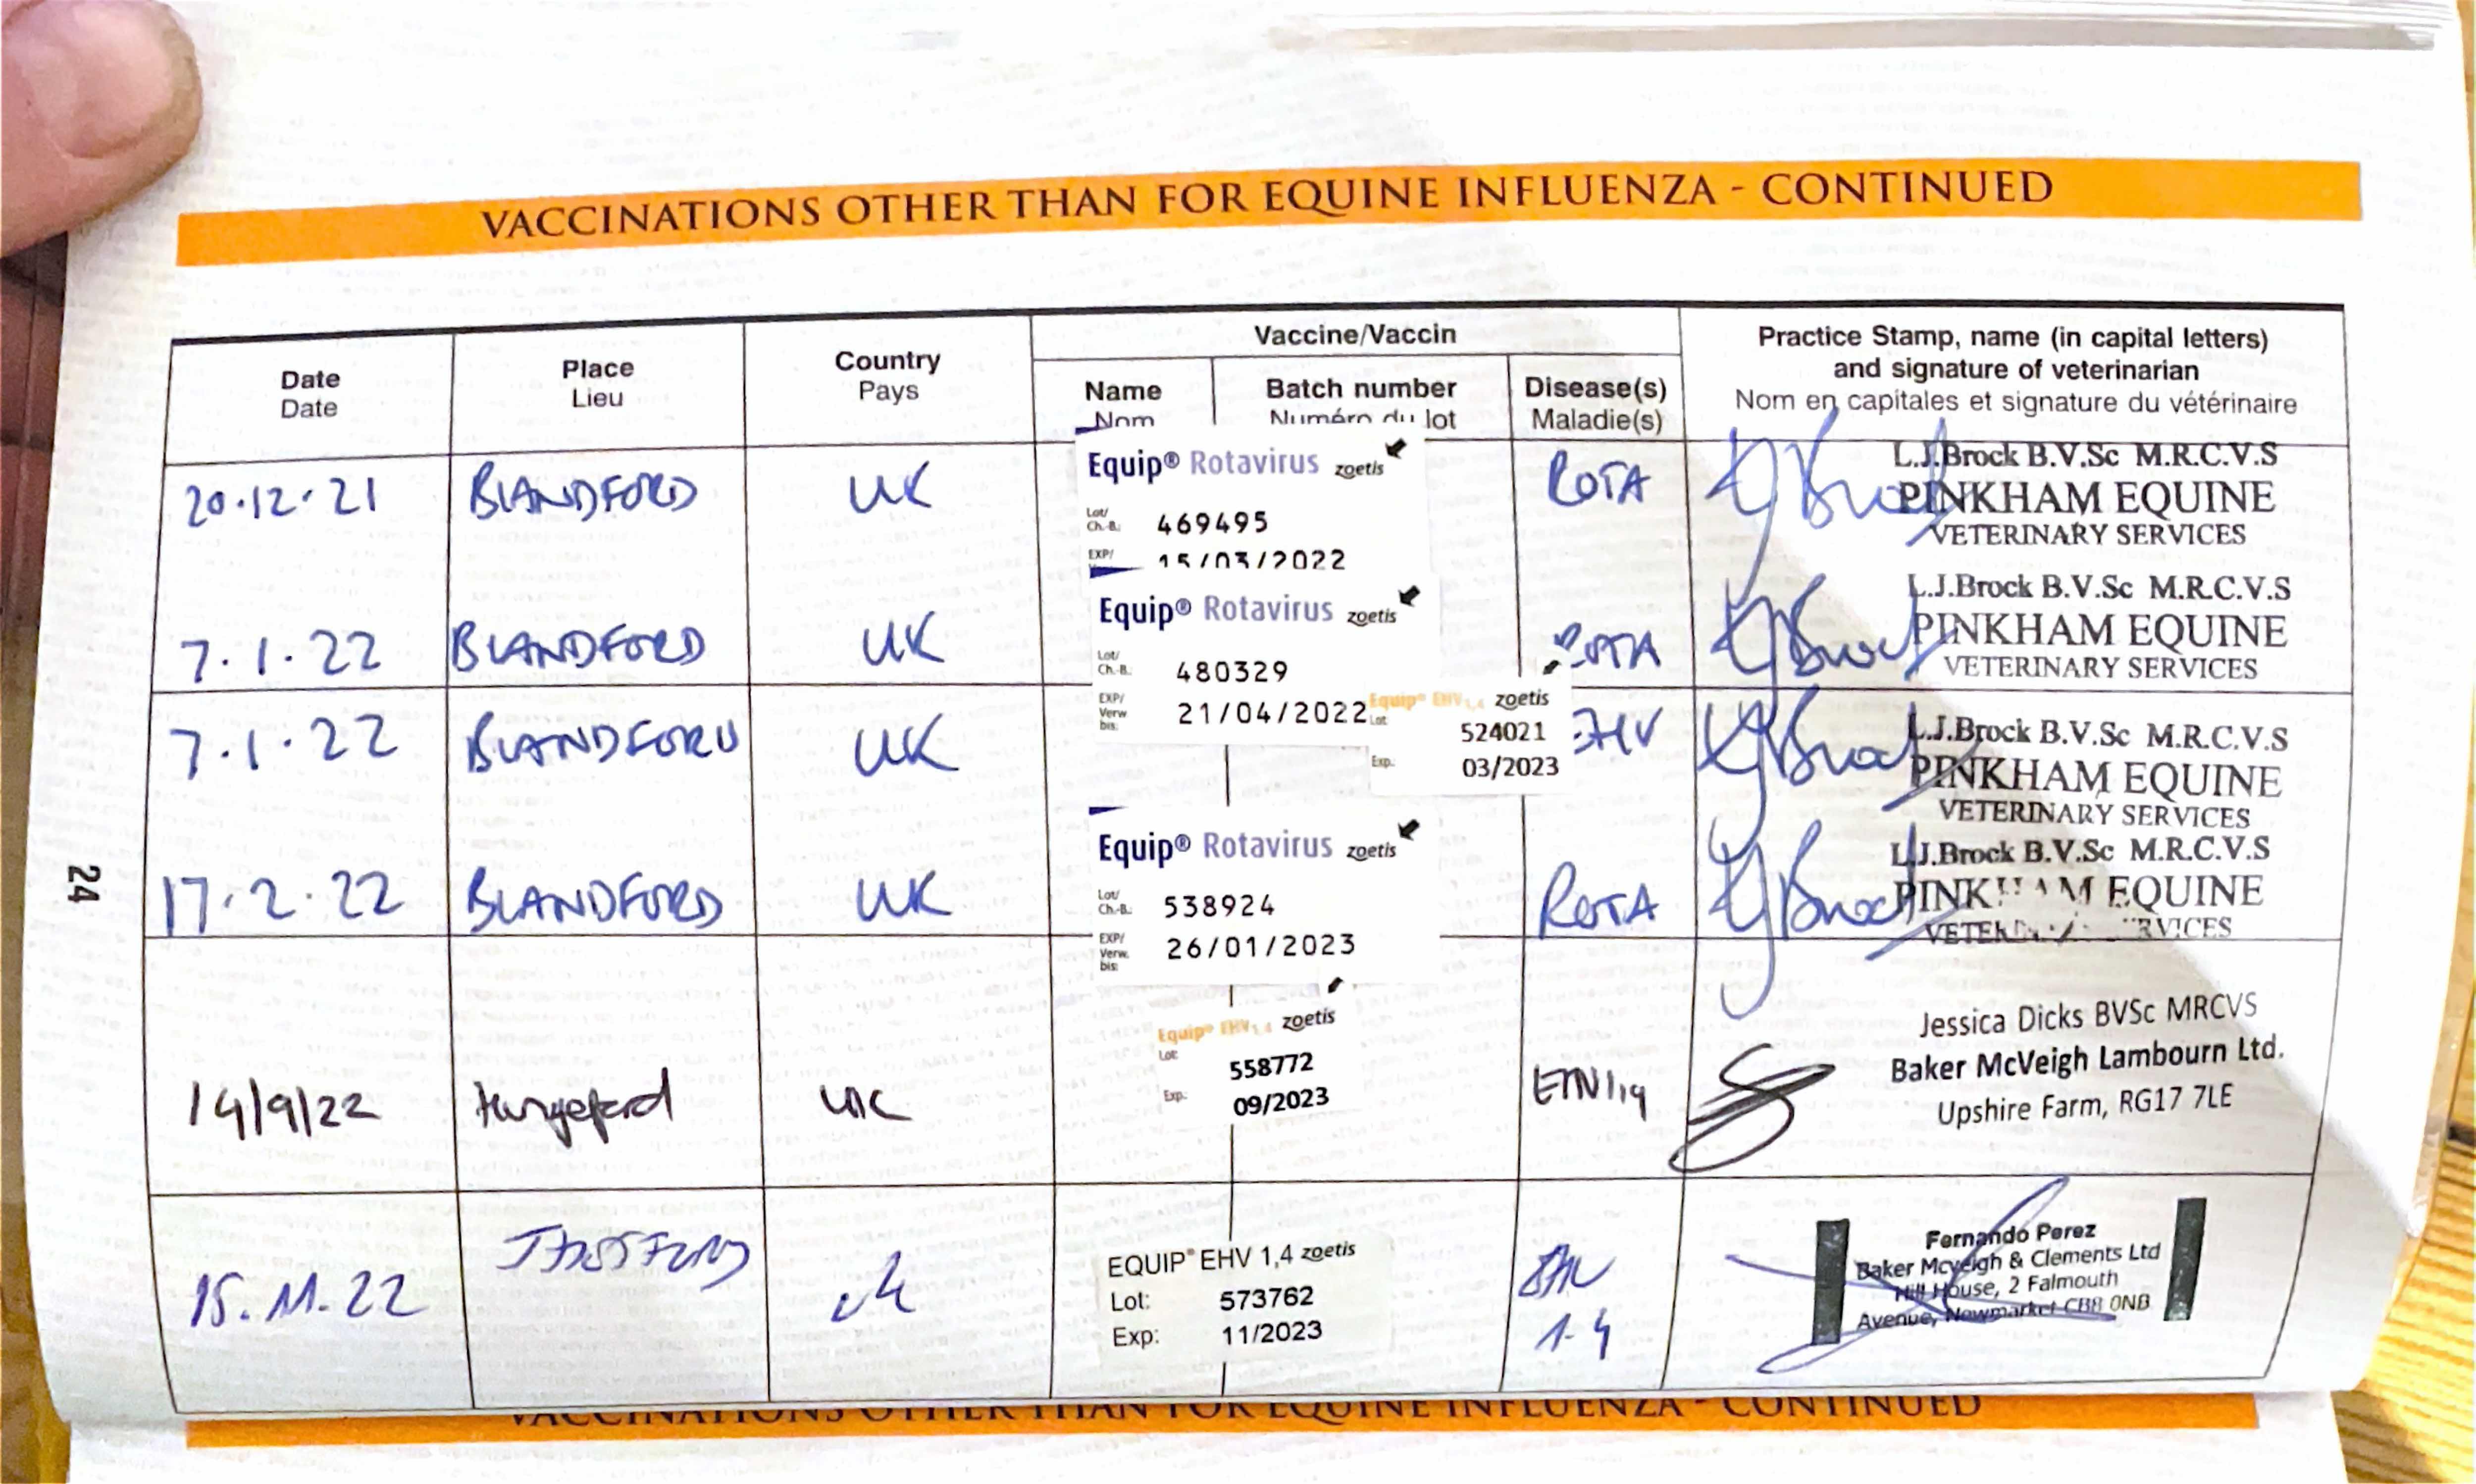 VACCINATIONS OTHER THAN FOR EQUINE INFLUENZA - CONTINUED
Date
Date
Place
Lieu
Country
Pays
Vaccine/Vaccin
Name
Nom
Batch number
Numéro du lot
Disease(s)
Maladie(s)
Practice Stamp, name (in capital letters)
and signature of veterinarian
Nom en capitales et signature du vétérinaire
20.12.21 BLANDFORD UK
Equip® Rotavirus zoetis
Lot/
Ch.-B.: 469495
EXP/ 15/03/2022
ROTA
L.J.Brock B.V.Sc M.R.C.V.S
PINKHAM EQUINE
VETERINARY SERVICES
7.1.22 BLANDFORD UK
Equip® Rotavirus zoetis
Lot/
Ch.-B.: 480329
EXP/
Verw
bis: 21/04/2022
ROTA
L.J.Brock B.V.Sc M.R.C.V.S
PINKHAM EQUINE
VETERINARY SERVICES
7.1.22 BLANDFORD UK
Equip® EHV 1,4 zoetis
Lot: 524021
Exp.: 03/2023
EHV
L.J.Brock B.V.Sc M.R.C.V.S
PINKHAM EQUINE
VETERINARY SERVICES
17.2.22 BLANDFORD UK
Equip® Rotavirus zoetis
Lot/
Ch.-B.: 538924
EXP/
Verw.
bis: 26/01/2023
ROTA
L.J.Brock B.V.Sc M.R.C.V.S
PINKHAM EQUINE
VETERINARY SERVICES
14/9/22 Hungerford UK
Equip® EHV 1,4 zoetis
Lot: 558772
Exp.: 09/2023
Jessica Dicks BVSc MRCVS
Baker McVeigh Lambourn Ltd.
Upshire Farm, RG17 7LE
15.11.22 UK
EQUIP® EHV 1,4 zoetis
Lot: 573762
Exp: 11/2023
EHV
1-4
Fernando Perez
Baker Mcveigh & Clements Ltd
Hill House, 2 Falmouth
Avenue, Newmarket CB8 0NB
24
VACCINATIONS OTHER THAN FOR EQUINE INFLUENZA - CONTINUED